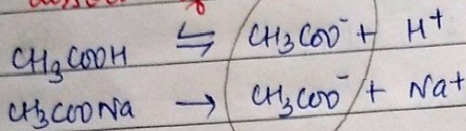 CH3COOH ⇌ CH3COO⁻ + H+
CH3COONa → CH3COO⁻ + Na+